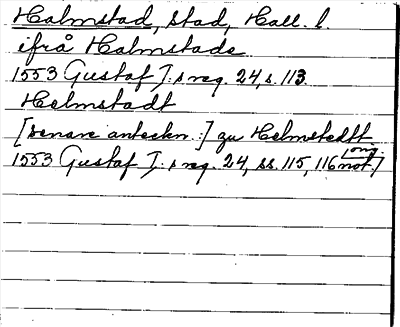 Halmstad, stad, Hall. l.
ifrå Halmstade
1553 Gustaf I:s reg. 24, s. 113.
Helmstadt
[senare anteckn.:] zu Helmstedtt
1553 Gustaf I:s reg. 24, ss. 115, 116 (orig. not.)